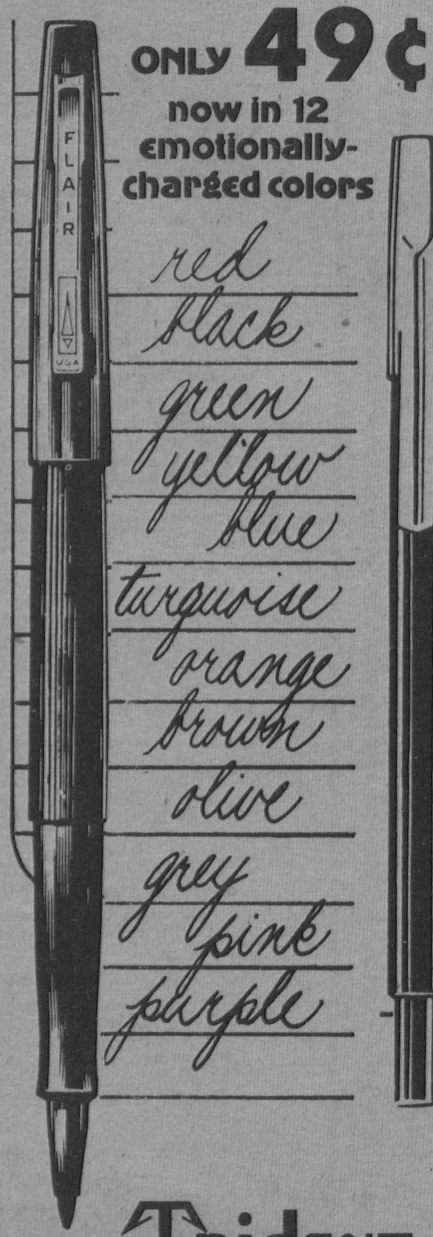 ONLY 49¢
now in 12
emotionally-
charged colors
FLAIR
USA
red
black
green
yellow
blue
turquoise
orange
brown
olive
grey
pink
purple
Trident